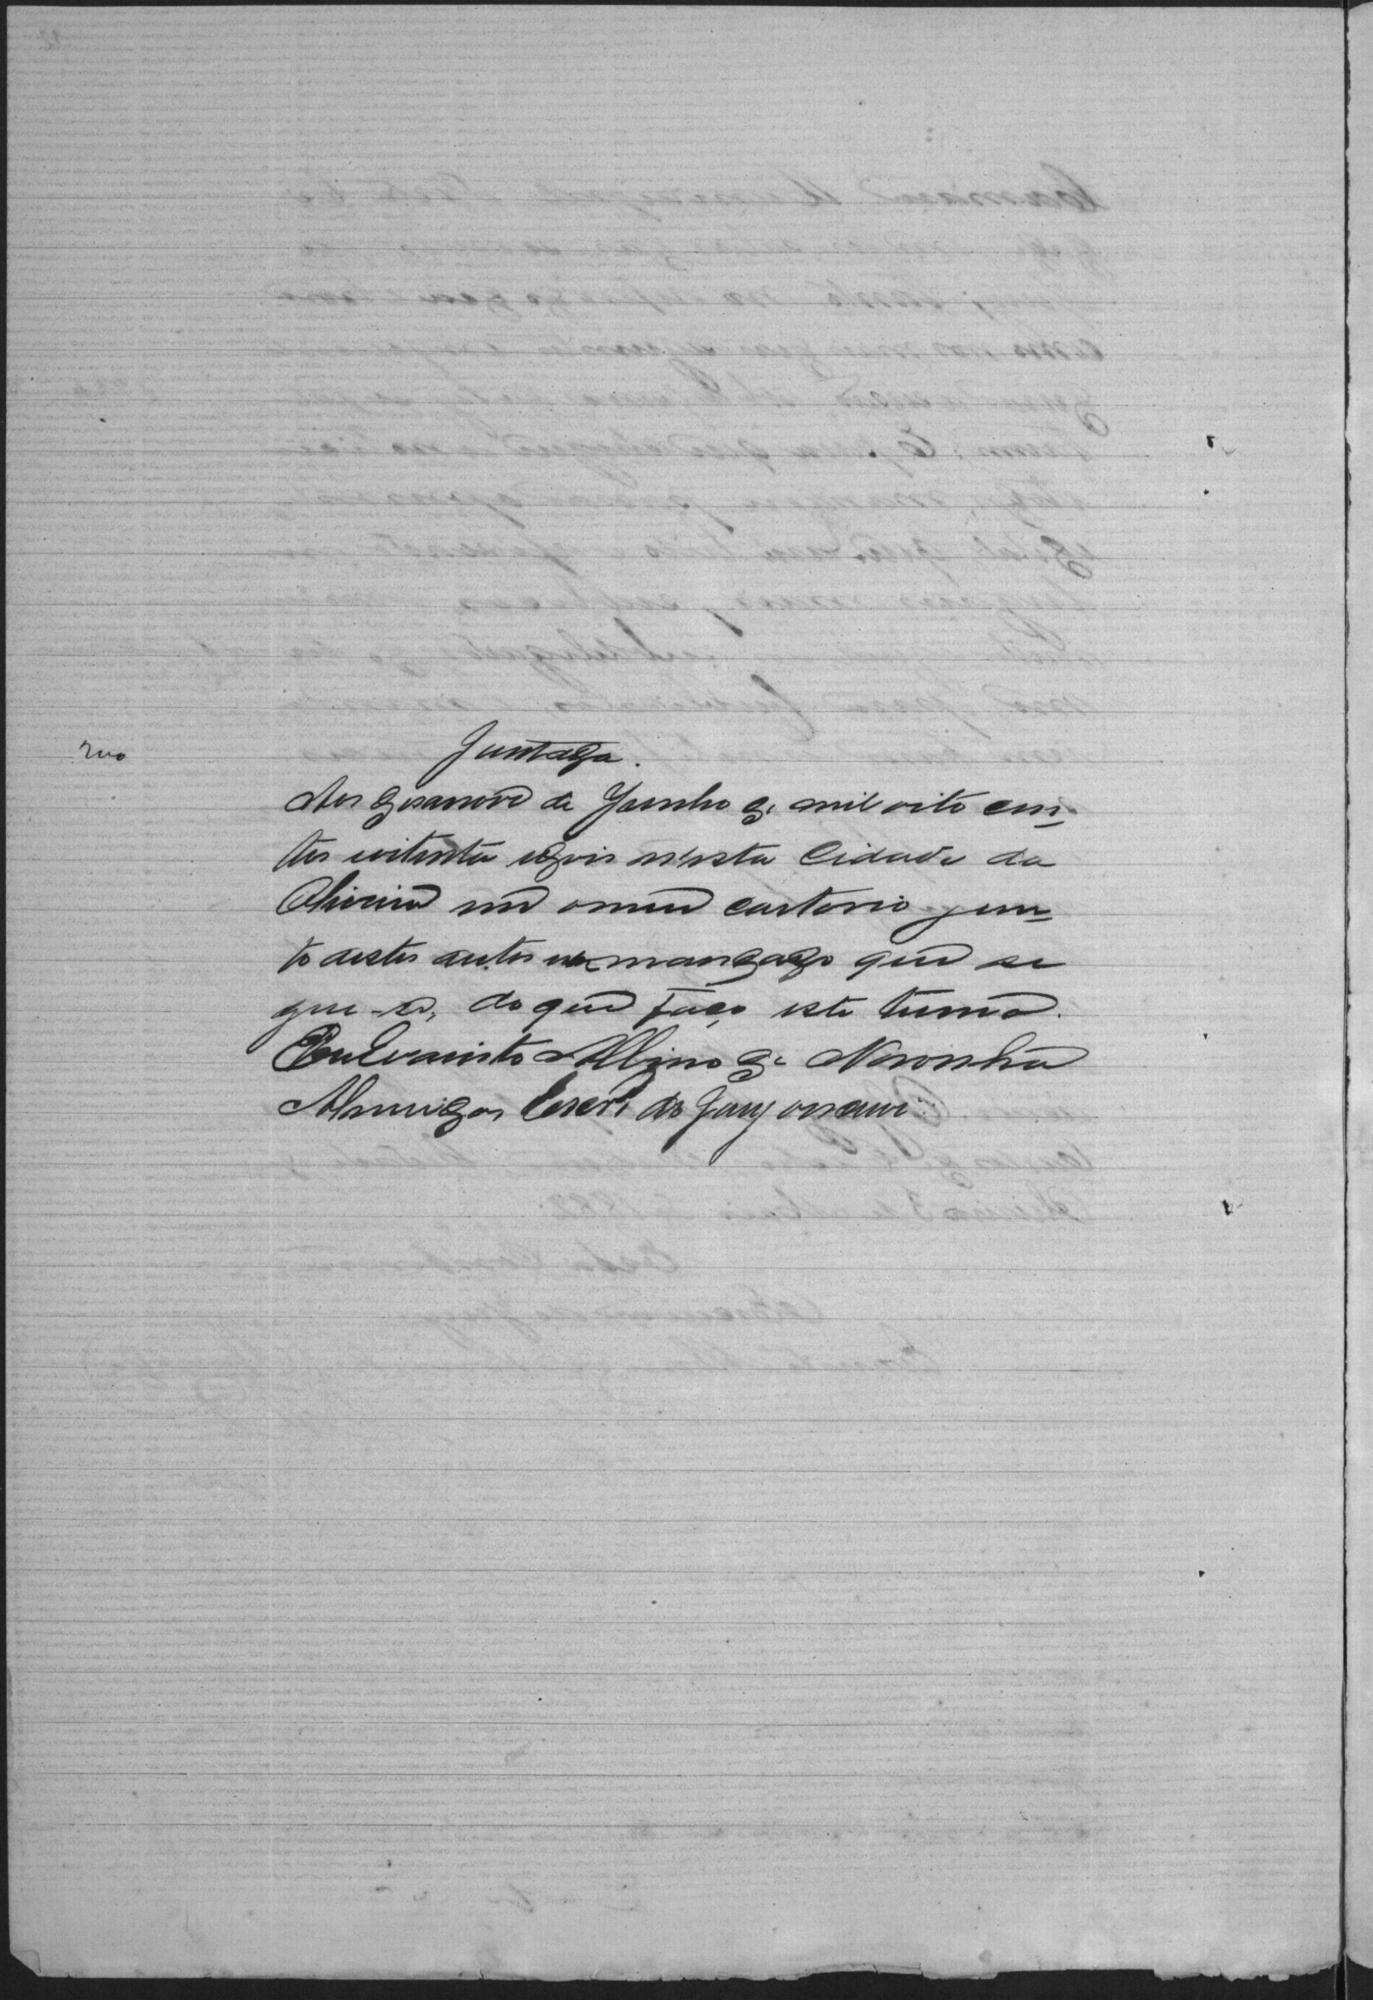 Juntada.
Aos desanove de Junho de mil oito cen-
tos oitenta e dois n'esta Cidade da
Oliveira em o meu cartorio jun-
to a estes autos o mandado que se
gue-se, do que faço este termo.
Eu Evaristo Albino de Noronha
Escrm do Juiz o escrevi.